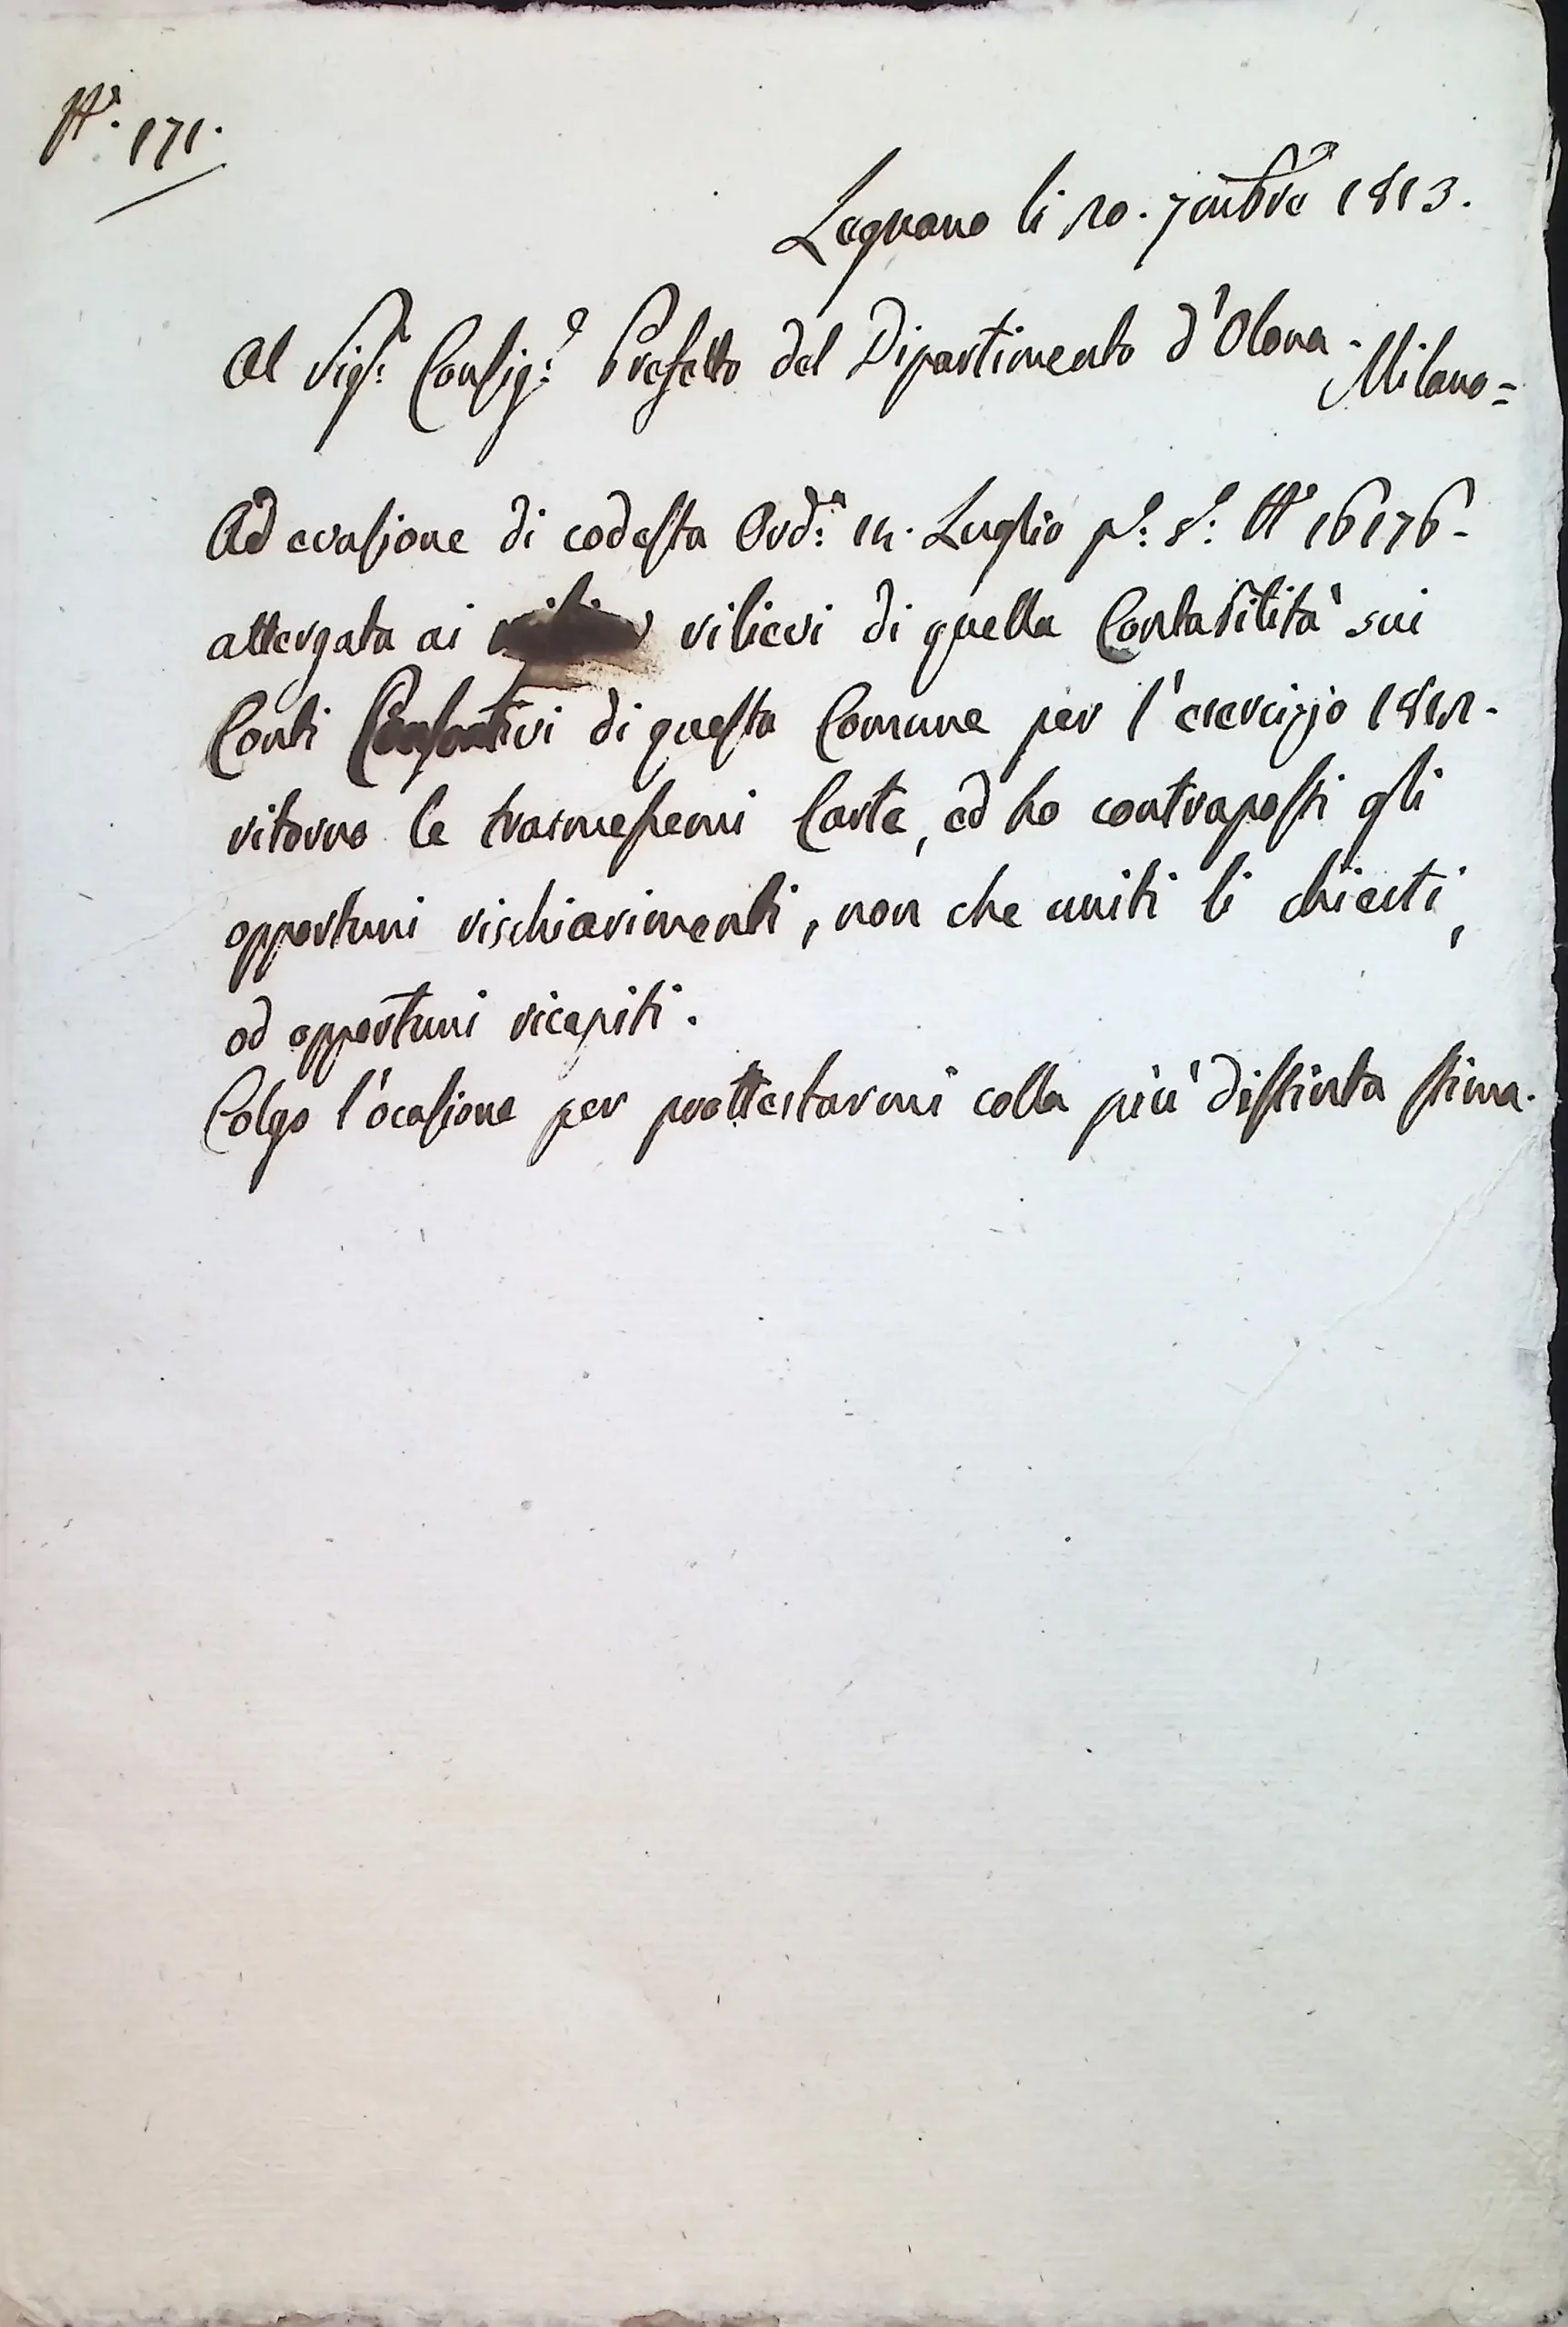 N.° 171.
Legnano li 20. 7mbre 1813.
Al Sig.r Consig.e Prefetto del Dipartimento d'Olona -
Milano =
Ad evasione di codesta Ord.a 14. Luglio p.o s.o N° 16176 -
attergata ai rilievi di quella Contabilità sui
Conti Consontivi di questa Comune per l'esercizio 1812 -
ritorno le trasmessemi Carte, ed ho contraposti gli
opportuni rischiarimenti, non che uniti li chiesti,
od opportuni ricapiti.
Colgo l'ocasione per prottestarmi colla più distinta stima.